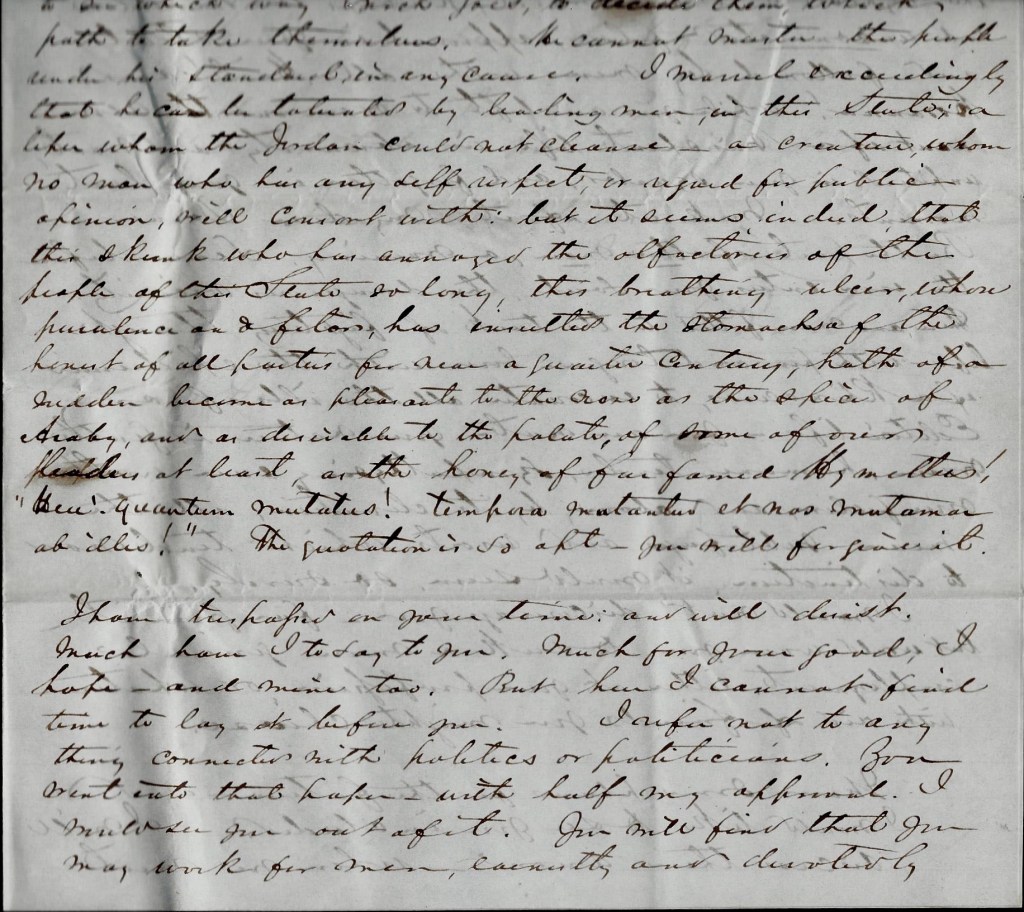 to see which way  goes, to decide them, which
path to take themselves. He cannot muster the people
under his standard, in any cause. I marvel exceedingly
that he can be tolerated by leading men, in this State; a
leper whom the Jordan could not cleanse – a creature, whom
no man who has any self respect, or regard for public
opinion, will consort with: but it seems indeed, that
this skunk who has annoyed the olfactories of the
people of this State so long, this breathing ulcer, whose
purulence and fetor, has insulted the stomachs of the
honest of all parties for near a quarter century, hath of a
sudden become as pleasant to the nose as the spice of
Araby, and as desirable to the palate, of some of our
leaders at least, as the honey of far famed Hymettus!
"Heu! quantum mutatus! tempora mutantur et nos mutamur
ab illis!" The quotation is so apt – you will forgive it.
I have trespassed on your time: and will desist.
Much have I to say to you. Much for your good, I
hope – and mine too. But here I cannot find
time to lay it before you. I refer not to any
thing connected with politics or politicians. You
went into that paper – with half my approval. I
would see you out of it. You will find that you
may work for men, earnestly and devotedly